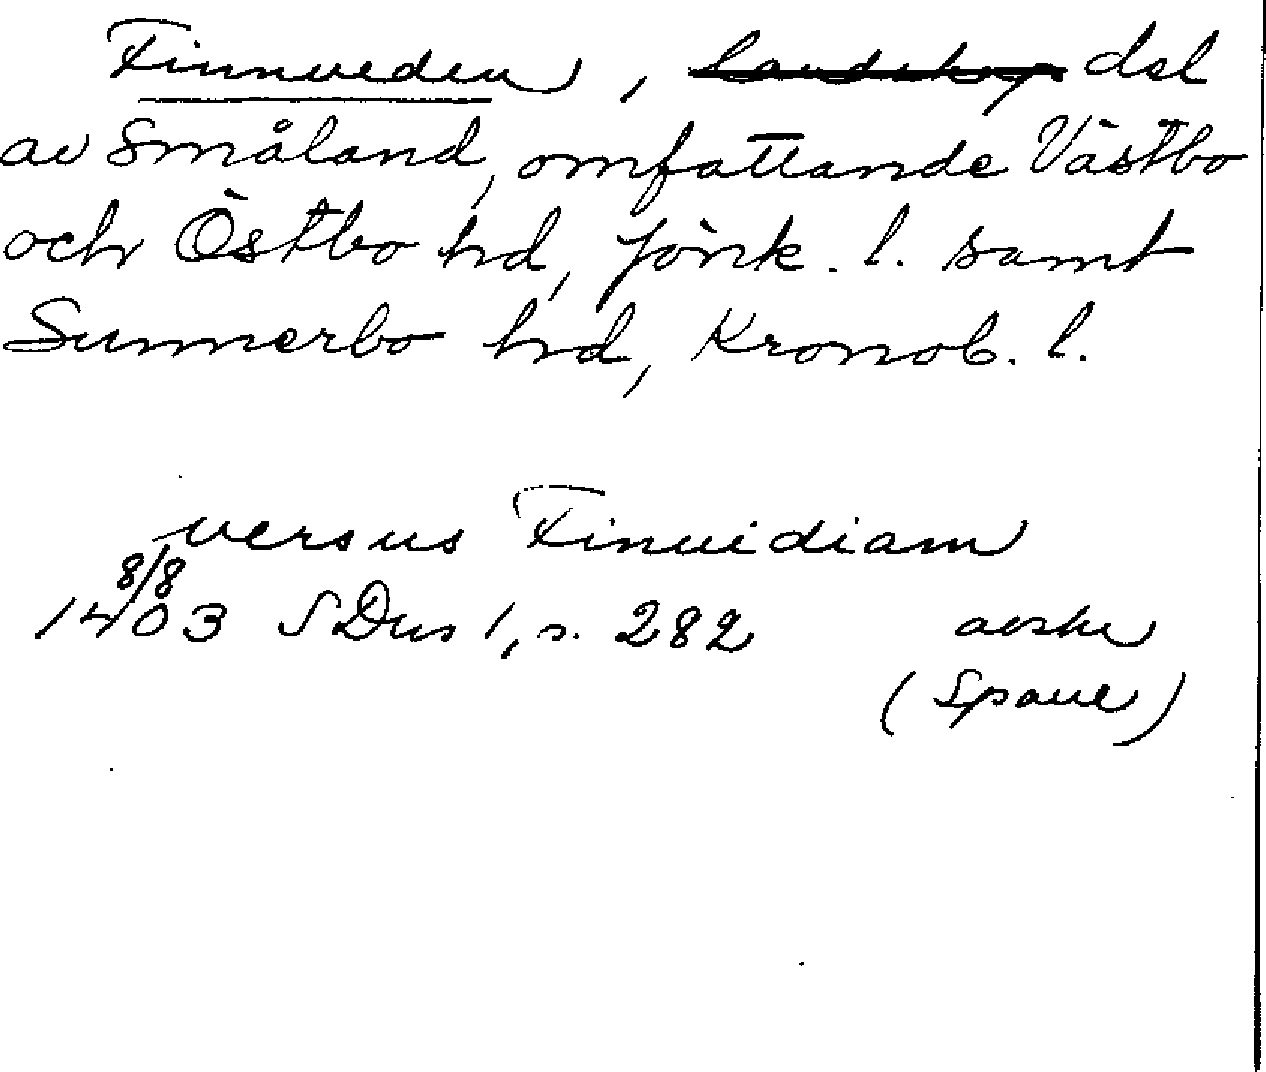 Finnveden, landskap del
av Småland, omfattande Västbo
och Östbo hd, Jönk. l. samt
Sunnerbo hd, Kronob. l.
versus Finvidiam
8/8
1403 SDns 1, s. 282 avskr
(Spaue)